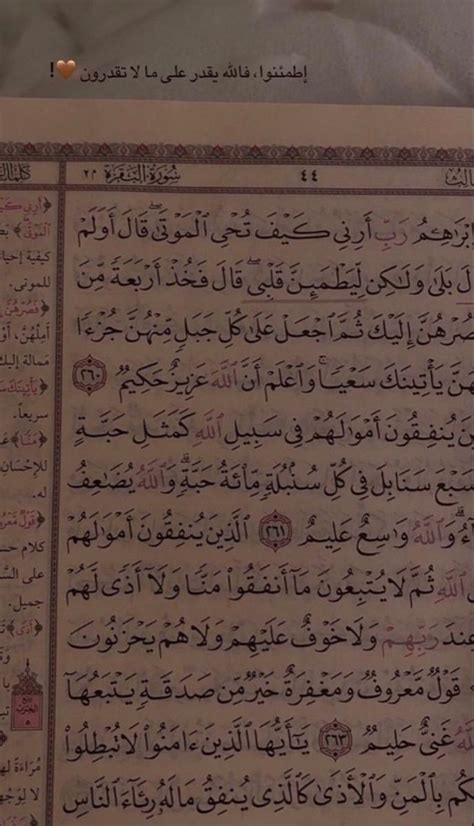 إطمئنوا، فالله يقدر على ما لا تقدرون 🧡!
٤٤
سُورَةُ البَقَرَةِ
إِبْرَٰهِـۧمُ رَبِّ أَرِنِي كَيْفَ تُحْيِ ٱلْمَوْتَىٰۖ قَالَ أَوَلَمْ
لَ بَلَىٰ وَلَٰكِن لِّيَطْمَئِنَّ قَلْبِيۖ قَالَ فَخُذْ أَرْبَعَةً مِّنَ
صُرْهُنَّ إِلَيْكَ ثُمَّ ٱجْعَلْ عَلَىٰ كُلِّ جَبَلٍ مِّنْهُنَّ جُزْءًا
هُنَّ يَأْتِينَكَ سَعْيًاۚ وَٱعْلَمْ أَنَّ ٱللَّهَ عَزِيزٌ حَكِيمٌ ٢٦٠
ينَ يُنفِقُونَ أَمْوَٰلَهُمْ فِي سَبِيلِ ٱللَّهِ كَمَثَلِ حَبَّةٍ
سَبْعَ سَنَابِلَ فِي كُلِّ سُنۢبُلَةٍ مِّائَةُ حَبَّةٍۗ وَٱللَّهُ يُضَٰعِفُ
آءُۗ وَٱللَّهُ وَٰسِعٌ عَلِيمٌ ٢٦١ ٱلَّذِينَ يُنفِقُونَ أَمْوَٰلَهُمْ
ٱللَّهِ ثُمَّ لَا يُتْبِعُونَ مَآ أَنفَقُوا۟ مَنًّا وَلَآ أَذًى لَّهُمْ
عِندَ رَبِّهِمْ وَلَا خَوْفٌ عَلَيْهِمْ وَلَا هُمْ يَحْزَنُونَ
قَوْلٌ مَّعْرُوفٌ وَمَغْفِرَةٌ خَيْرٌ مِّن صَدَقَةٍ يَتْبَعُهَآ
ٱللَّهُ غَنِيٌّ حَلِيمٌ ٢٦٣ يَٰٓأَيُّهَا ٱلَّذِينَ ءَامَنُوا۟ لَا تُبْطِلُوا۟
كُم بِٱلْمَنِّ وَٱلْأَذَىٰ كَٱلَّذِي يُنفِقُ مَالَهُۥ رِئَآءَ ٱلنَّاسِ
﴿أَرِنِي
ٱلْمَوْتَىٰ﴾
كيفية
للموتى.
﴿فَصُرْهُنَّ
أَمِلْهُنَّ، أَوْ
ممالة
﴿يَأْتِينَكَ
سريعاً.
﴿مَنًّا﴾
للإحسان
له.
﴿قَوْلٌ
كلام
على
جميل.
﴿أَذًى﴾
مُرَاءَاةً